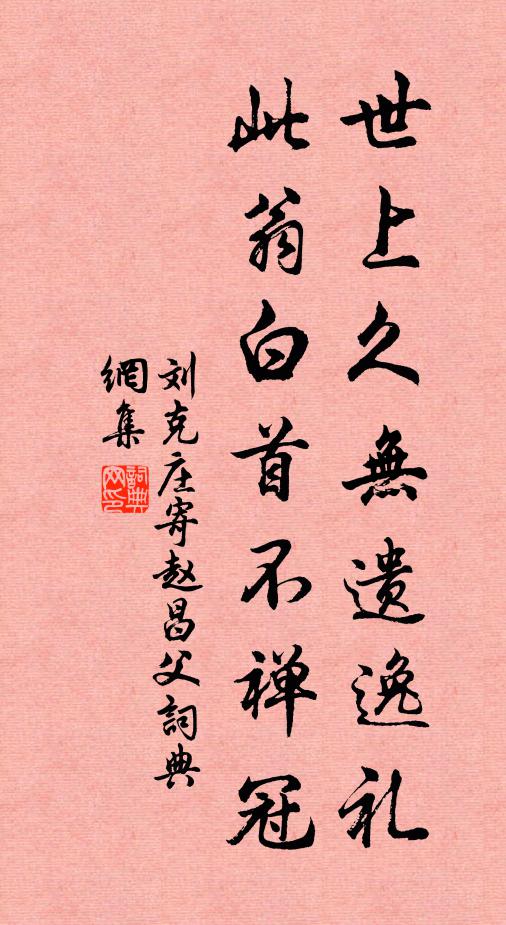 世上久無遗逸礼
此翁白首不禅冠
刘克庄寄赵昌父詞典
網集
詞典網印